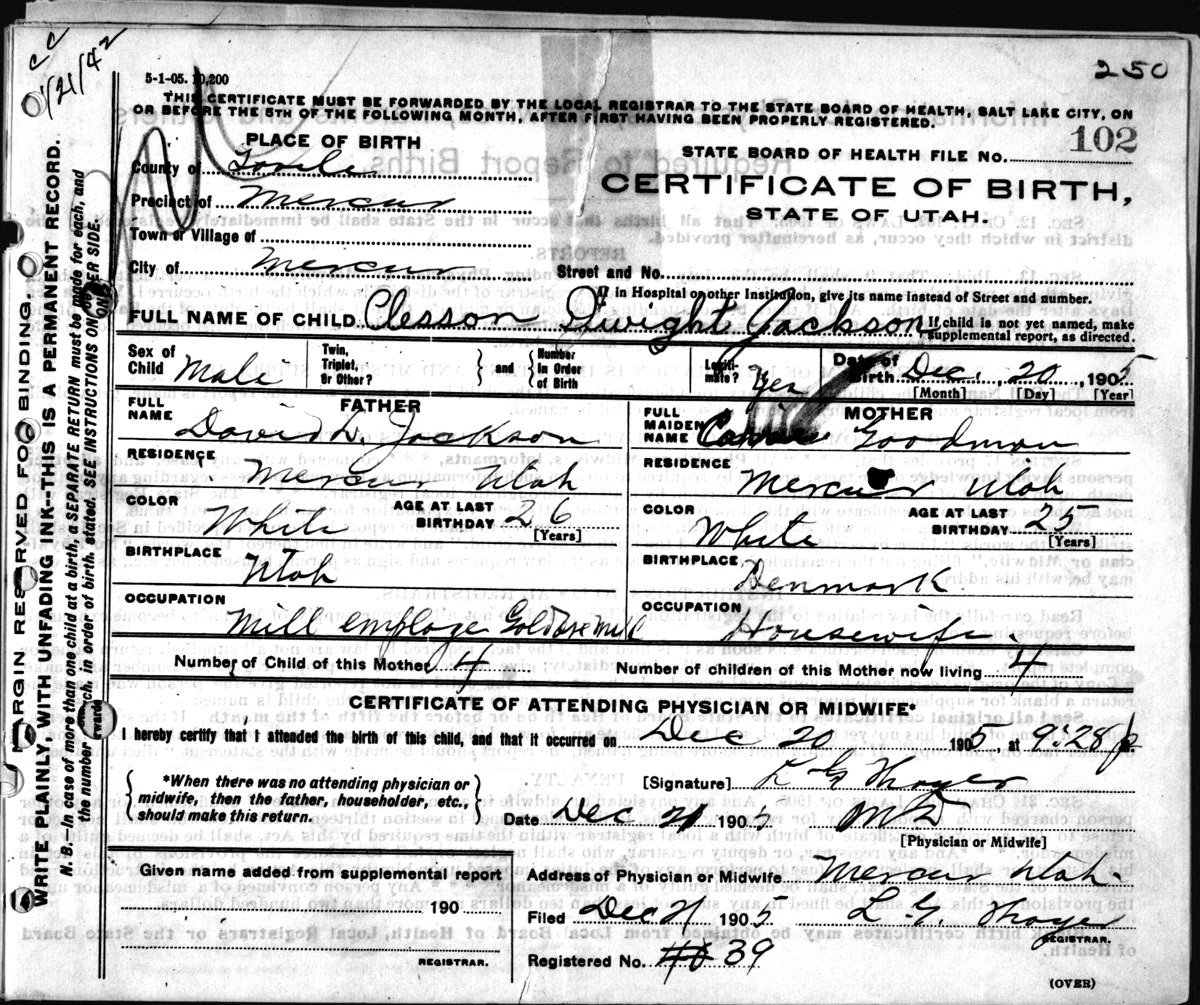 CC
1/21/42
250
5-1-05. 10,200
THIS CERTIFICATE MUST BE FORWARDED BY THE LOCAL REGISTRAR TO THE STATE BOARD OF HEALTH, SALT LAKE CITY, ON
OR BEFORE THE 5TH OF THE FOLLOWING MONTH, AFTER FIRST HAVING BEEN PROPERLY REGISTERED.
PLACE OF BIRTH
STATE BOARD OF HEALTH FILE NO. 102
County of Tooele
CERTIFICATE OF BIRTH,
Precinct of Mercur
STATE OF UTAH.
Town or Village of
City of Mercur Street and No.
If in Hospital or other Institution, give its name instead of Street and number.
FULL NAME OF CHILD Clesson Dwight Jackson If child is not yet named, make supplemental report, as directed.
Sex of Child Male Twin, Triplet, or Other? and Number in Order of Birth Legitimate? Yes Date of Birth Dec. 20, 1905
[Month] [Day] [Year]
FATHER MOTHER
FULL NAME David D. Jackson FULL MAIDEN NAME Goodman
RESIDENCE Mercur Utah RESIDENCE Mercur Utah
COLOR White AGE AT LAST BIRTHDAY 26 [Years] COLOR White AGE AT LAST BIRTHDAY 25 [Years]
BIRTHPLACE Utah BIRTHPLACE Denmark
OCCUPATION Mill employe Gold ore mill OCCUPATION Housewife
Number of Child of this Mother 4 Number of children of this Mother now living 4
CERTIFICATE OF ATTENDING PHYSICIAN OR MIDWIFE*
I hereby certify that I attended the birth of this child, and that it occurred on Dec 20 1905 at 9.28 p
*When there was no attending physician or midwife, then the father, householder, etc., should make this return.
[Signature] L G Thayer
Date Dec 21 1905 MD
[Physician or Midwife]
Given name added from supplemental report
Address of Physician or Midwife Mercur Utah
190
Filed Dec 21 1905 L. G. Thayer
REGISTRAR.
REGISTRAR.
Registered No. 39
(OVER)
MARGIN RESERVED FOR BINDING.
WRITE PLAINLY, WITH UNFADING INK—THIS IS A PERMANENT RECORD.
N. B.—In case of more than one child at a birth, a SEPARATE RETURN must be made for each, and
the number of each, in order of birth, stated. SEE INSTRUCTIONS ON OTHER SIDE.